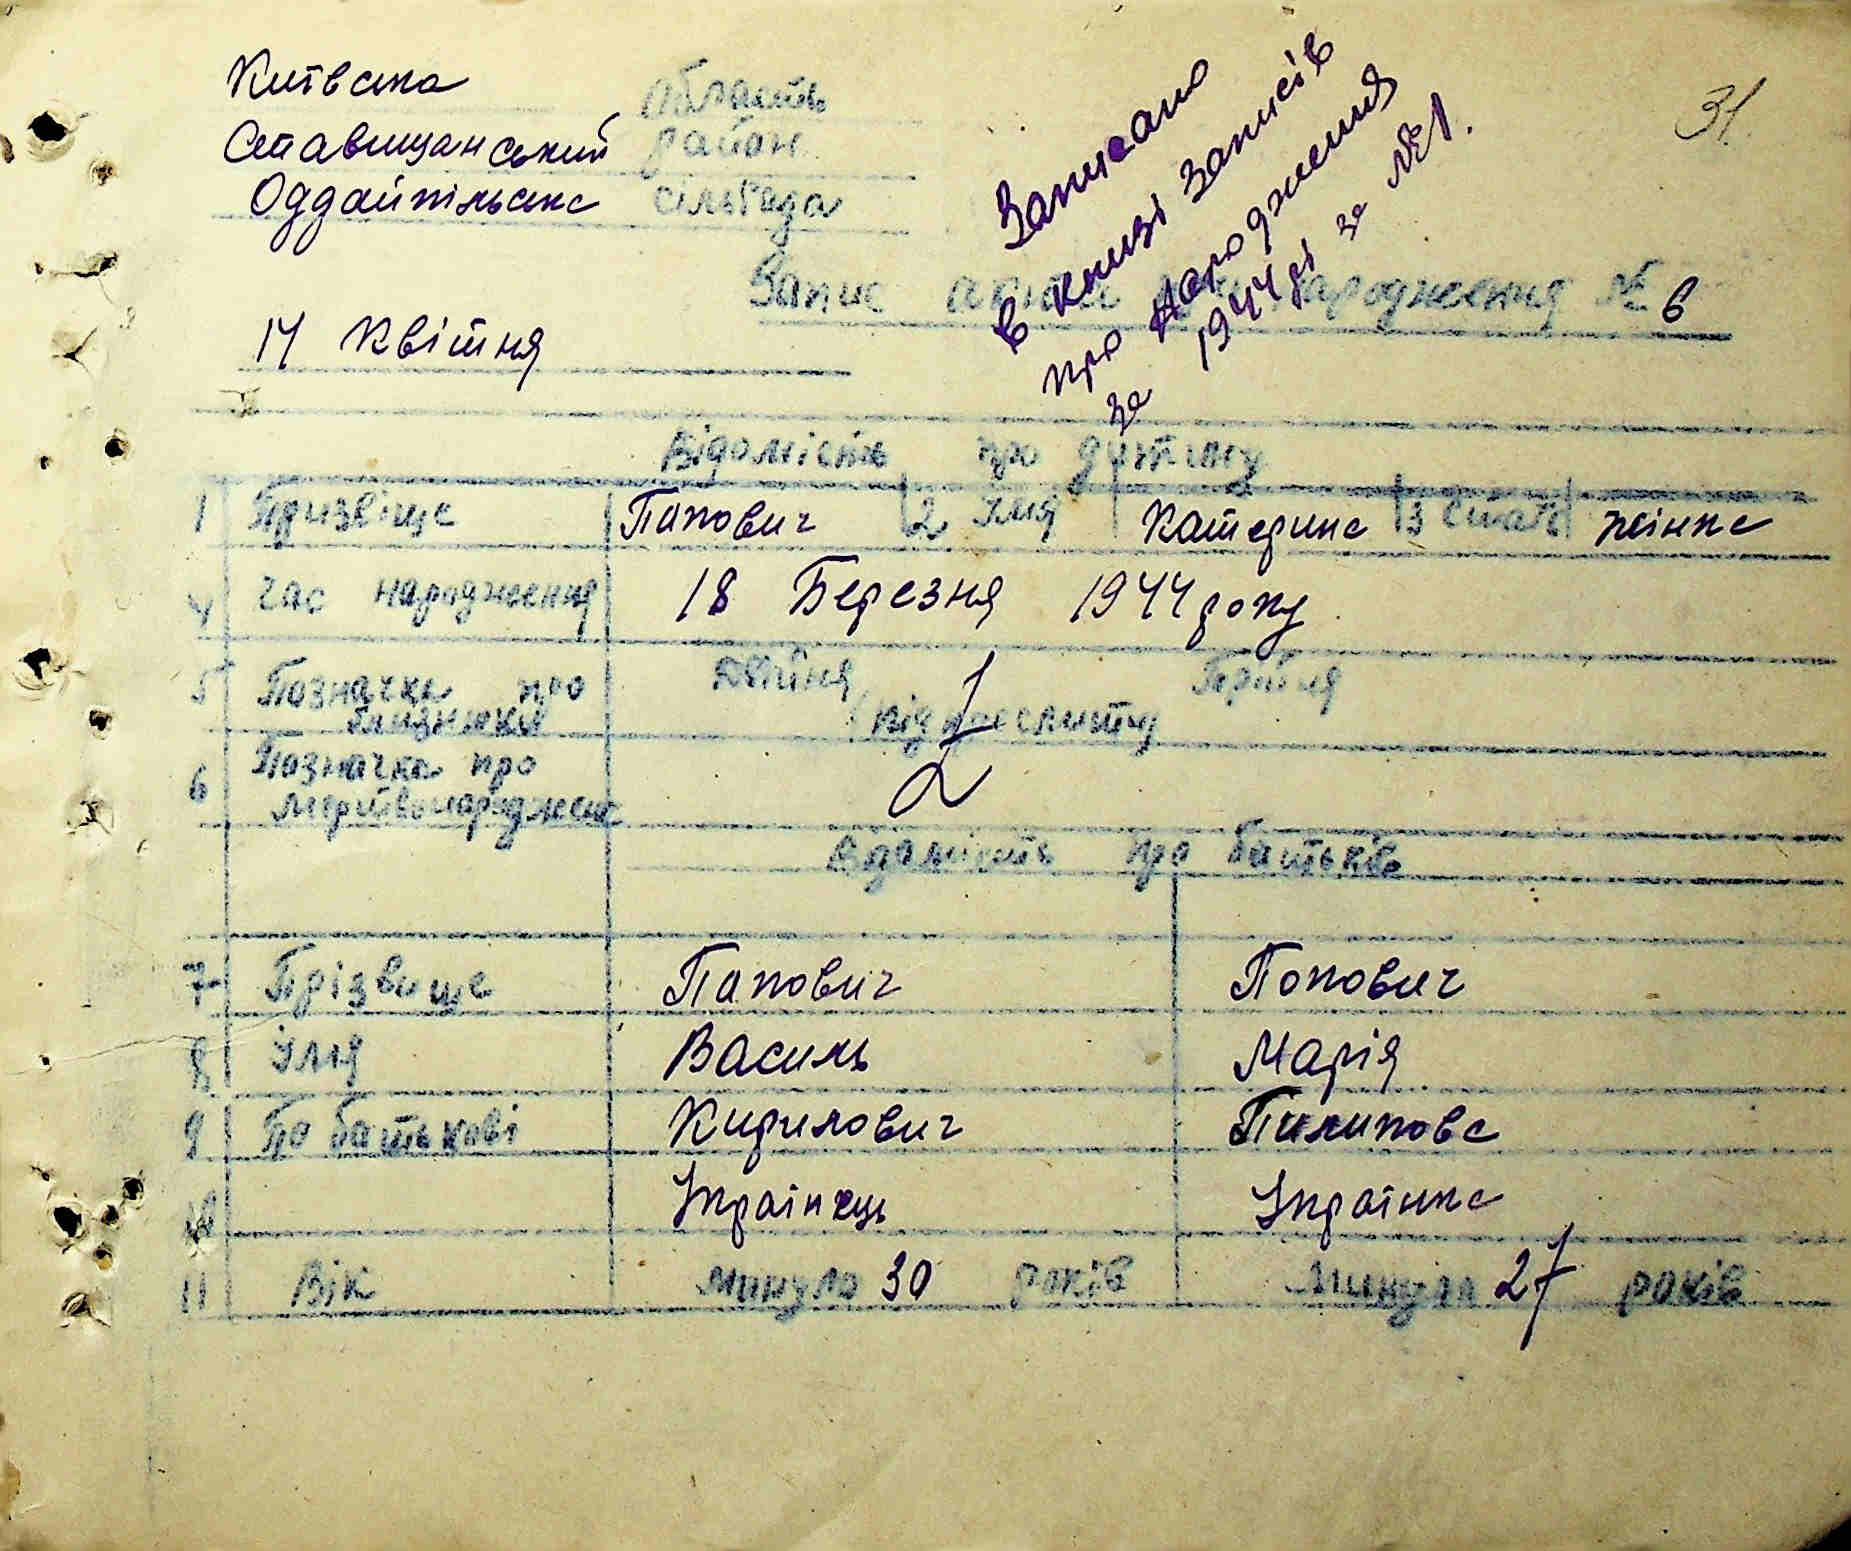 Київська область
Ставищанський район
Оддайпільська сільрада
31.
Записано
в книзі записів
про народження
за 1944 рі за №1.
Запис акта народження № 6
14 Квітня
Відомість про дитину
1 Призвіще Попович 2 Імя Катерина 3 Стать жінка
4 Час народження 18 Березня 1944 року
5 Позначка про близнюків Двійня Трійня
підкреслити
6 Позначка про мертвонароджен
Відомість про батьків
7 Прізвище Попович Попович
8 Імя Василь Марія
9 По батькові Кирилович Пилипова
10 Українець Українка
11 Вік минуло 30 років минуло 27 років